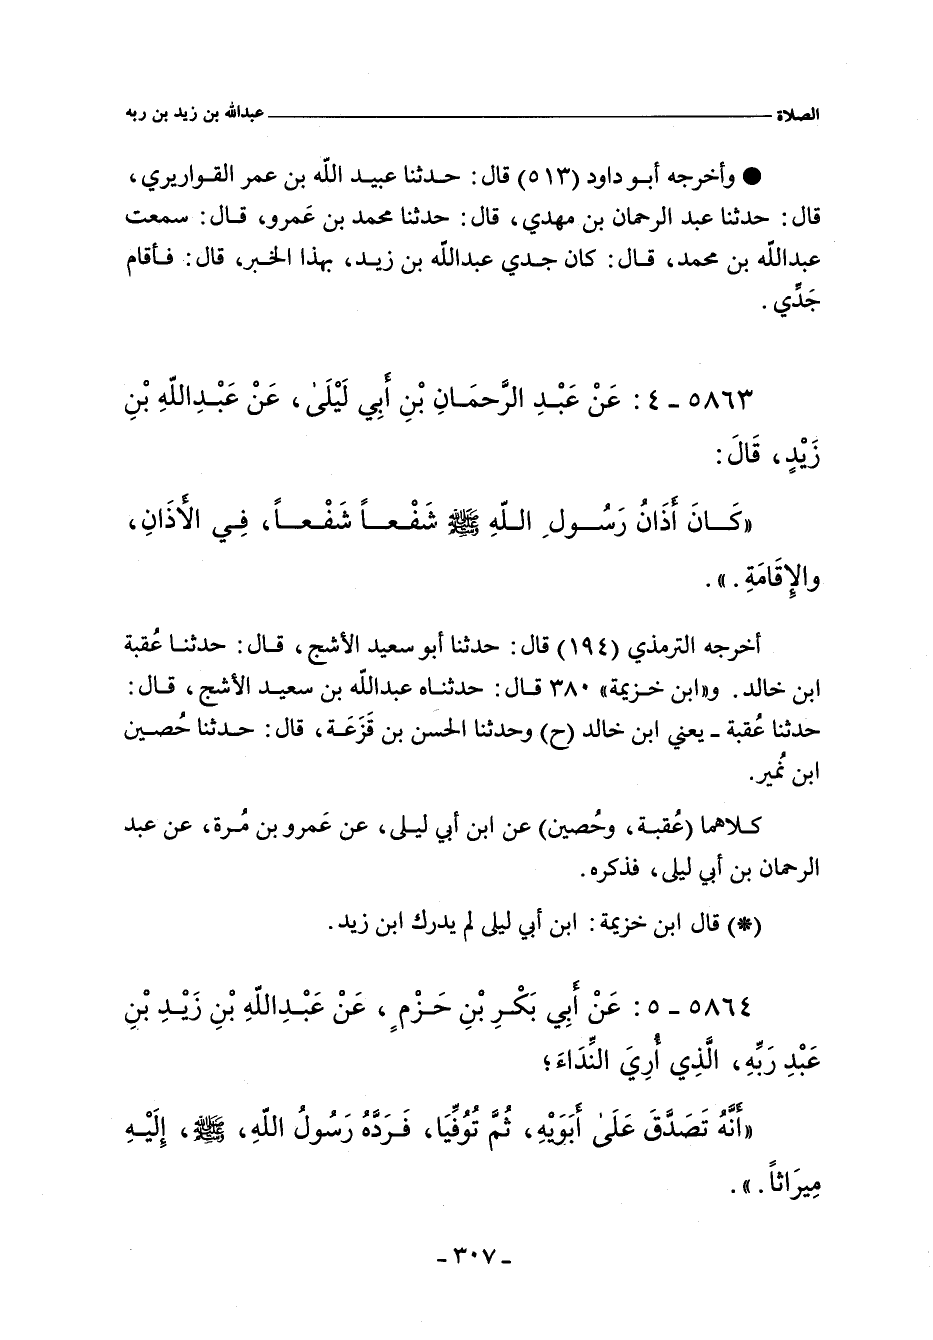 الصلاة ــــــ عبدالله بن زيد بن ربه
● وأخرجه أبو داود (٥١٣) قال: حدثنا عبيد الله بن عمر القواريري،
قال: حدثنا عبد الرحمان بن مهدي، قال: حدثنا محمد بن عَمرو، قال: سمعت
عبدالله بن محمد، قال: كان جدي عبدالله بن زيد، بهذا الخبر، قال: فأقام
جَدِّي.
٥٨٦٣ - ٤: عَنْ عَبْدِ الرَّحمَانِ بْنِ أَبِي لَيْلَىٰ، عَنْ عَبْدِاللّهِ بْنِ
زَيْدٍ، قَالَ:
«كَانَ أَذَانُ رَسُولِ اللّهِ ﷺ شَفْعاً شَفْعاً، فِي الأَذَانِ،
والإِقَامَةِ.».
أخرجه الترمذي (١٩٤) قال: حدثنا أبو سعيد الأشج، قال: حدثنا عُقبة
ابن خالد. و«ابن خزيمة» ٣٨٠ قال: حدثناه عبدالله بن سعيد الأشج، قال:
حدثنا عُقبة - يعني ابن خالد (ح) وحدثنا الحسن بن قَزَعَة، قال: حدثنا حُصين
ابن نُمير.
كلاهما (عُقبة، وحُصين) عن ابن أبي ليلى، عن عَمرو بن مُرة، عن عبد
الرحمان بن أبي ليلى، فذكره.
(*) قال ابن خزيمة: ابن أبي ليلى لم يدرك ابن زيد.
٥٨٦٤ - ٥: عَنْ أَبِي بَكْرِ بْنِ حَزْمٍ، عَنْ عَبْدِاللّهِ بْنِ زَيْدِ بْنِ
عَبْدِ رَبِّهِ، الَّذِي أُرِيَ النِّدَاءَ؛
«أَنَّهُ تَصَدَّقَ عَلَىٰ أَبَوَيْهِ، ثُمَّ تُوُفِّيَا، فَرَدَّهُ رَسُولُ اللّهِ، ﷺ، إِلَيْهِ
مِيرَاثاً.».
- ٣٠٧ -